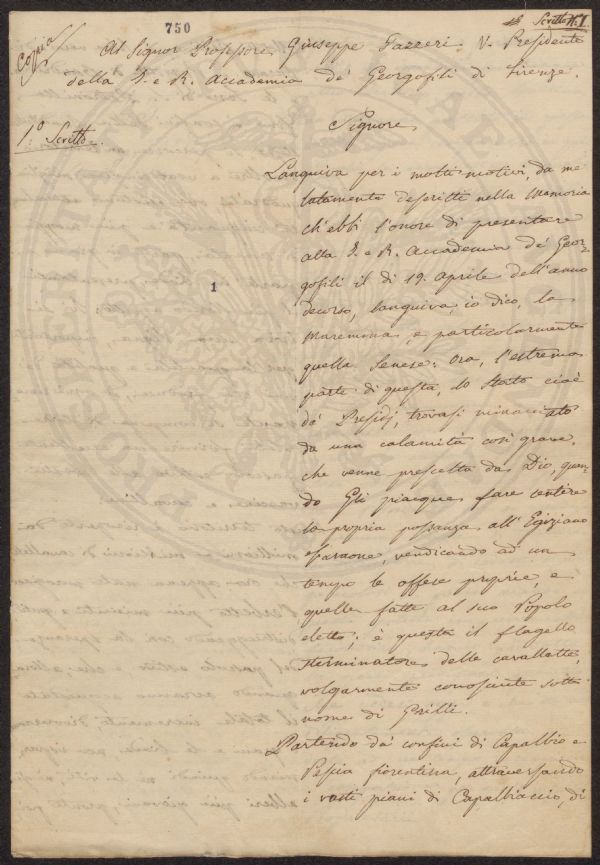 750
Scritto N.1
Copia
Al Signor Professore Giuseppe Gazzeri V. Presidente
della I. e R. Accademia de' Georgofili di Firenze.
1.o Scritto.
Signore
Languiva per i molti motivi, da me
latamente descritti nella Memoria
ch'ebbi l'onore di presentare
alla I. e R. Accademia de' Geor-
gofili il dì 19. Aprile dell'anno
1
decorso, languiva, io dico, la
Maremma, e particolarmente
quella Senese: Ora, l'estrema
parte di questa, lo Stato cioè
da' Presidj, trovasi minacciato
da una calamità così grave,
che venne prescelta da Dio, quan-
do Gli piacque fare sentire
la propria possanza all'Egiziano
Faraone, vendicando ad un
tempo le offese proprie, e
quelle fatte al suo Popolo
eletto; è questa il flagello
sterminatore delle cavallette,
volgarmente conosciute sotto
nome di Grilli.
Partendo da' confini di Capalbio e
Pescia fiorentina, attraversando
i vasti piani di Capalbiaccio, di